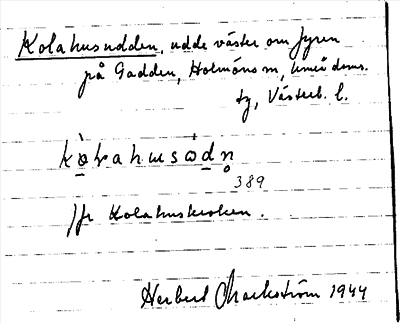 Kolahusudden, udde väster om fyren
på Gadden, Holmöns sn, Umeå doms.
tg, Västerb. l.
kòlrahusúdn̥
389
Jfr Kolahuskroken.
Herbert Markström 1944